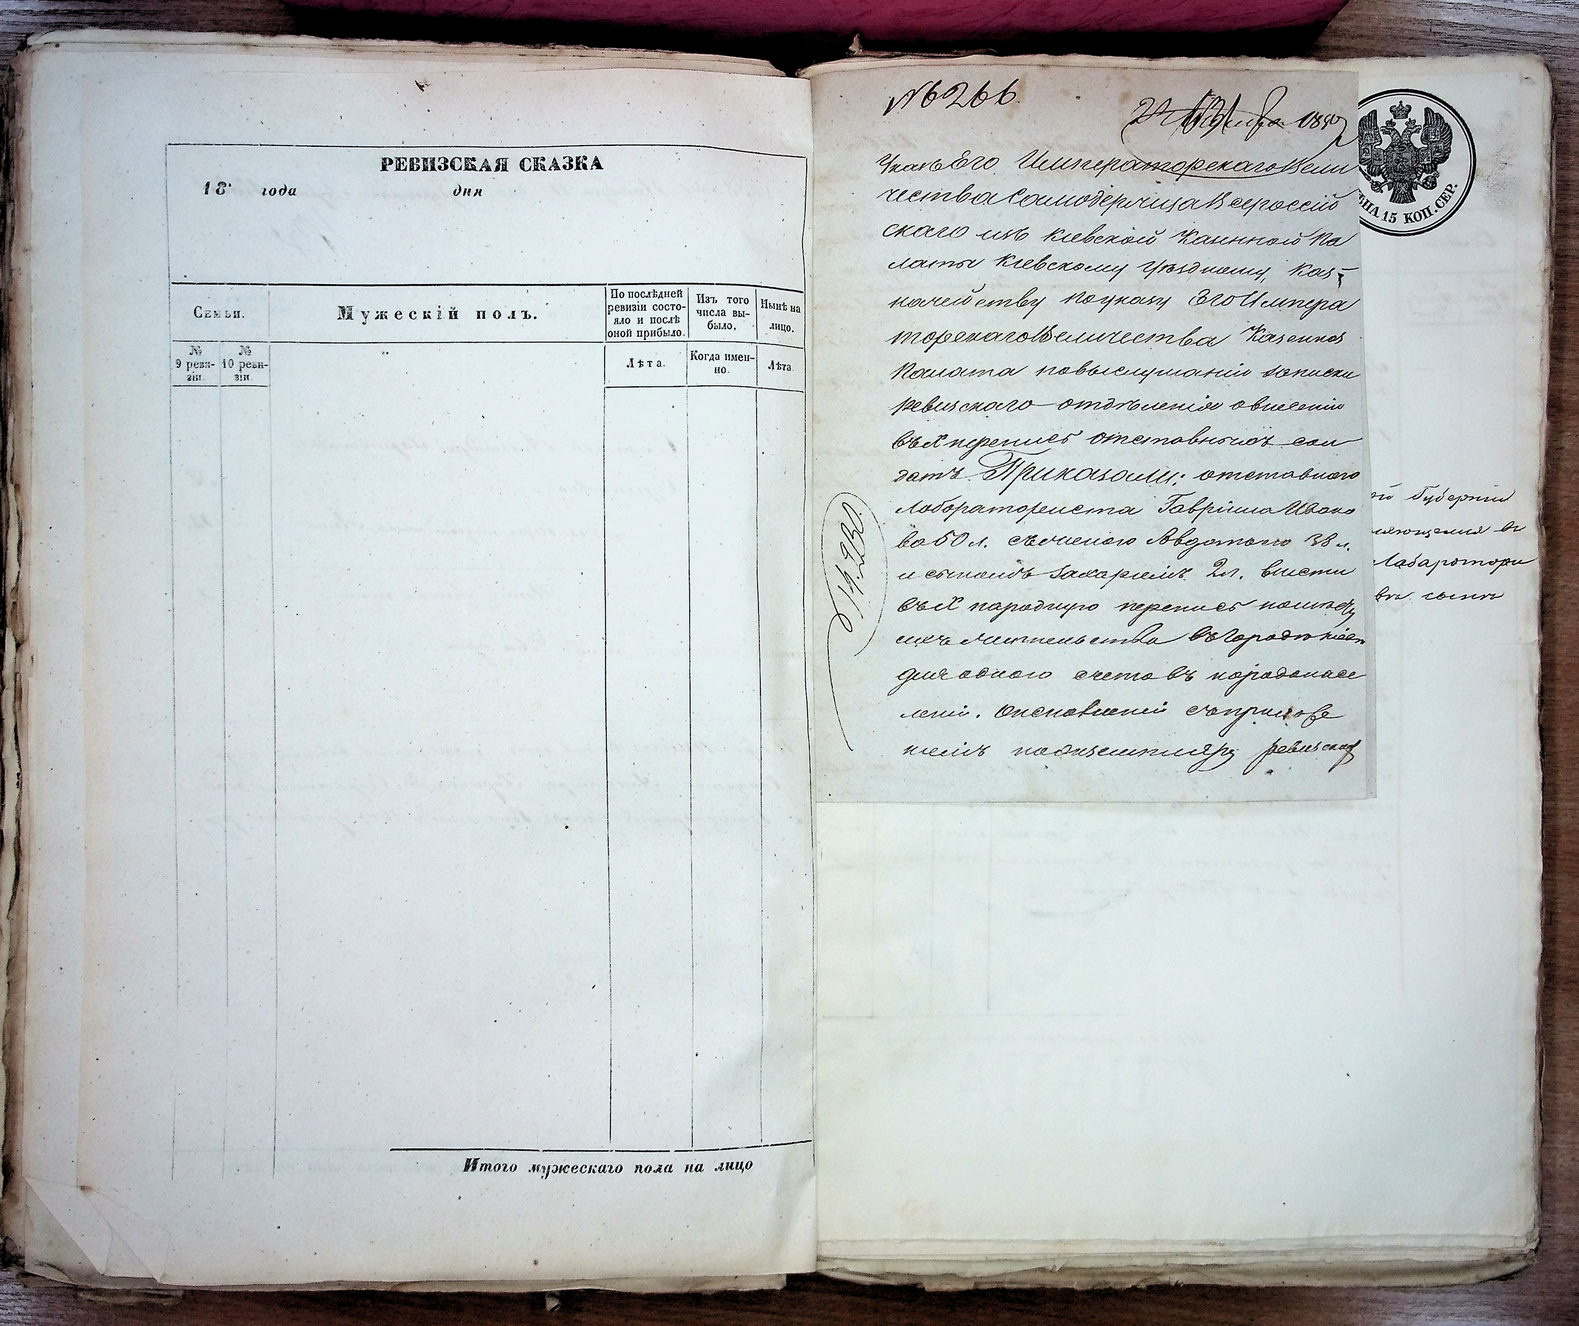 РЕВИЗСКАЯ СКАЗКА
18 года дня
Семьи.
Мужескій полъ.
По послѣдней ревизіи состояло и послѣ оной прибыло.
Изъ того числа выбыло.
Нынѣ на лицо.
№ 9 ревизіи.
№ 10 ревизіи.
Лѣта.
Когда именно.
Лѣта.
Итого мужескаго пола на лицо
№ 266.
Указъ Его Императорскаго Вели
чества Самодержца Всероссій
скаго изъ Кіевской Казенной Па
латы Кіевскому Уѣздному Каз-
начейству По указу Его Импера
торскаго Величества Казенная
Палата по выслушаніи записки
Ревизскаго отдѣленія о внесеніи
въ X перепись отставныхъ сол
датъ. Приказали: отставного
Лабораториста Гавріила Ивано
ва 50 л. съ женою Авдотьею 38 л.
и сыномъ Захаріемъ 2 л. внести
въ X народную перепись по мѣсту
ихъ жительства въ Городѣ Кіевѣ
для одного счета въ народонасе
леніи.
ніемъ по экземпляру ревизской
14,230
ЦѢНА 15 КОП. СЕР.
Губерніи
Лабаротори